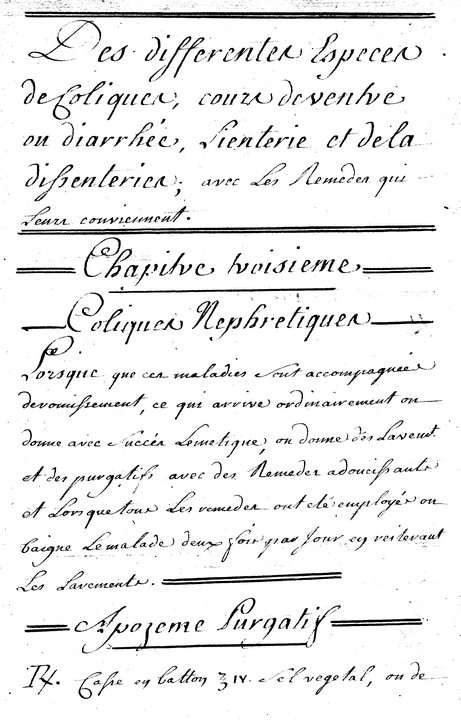 Des differentes Especes
de Coliques, cours deventre
ou diarrhée, Lienterie et dela
dissenteries; avec Les Remedes qui
Leurs conviennent.
Chapitre troisieme
Coliques Nephretiques
Lorsque que ces maladies sont accompagnées
devomissement, ce qui arrive ordinairement on
donne avec succès Lemetique, on donne des Lavemt.
et des purgatifs avec des Remedes adoucissants
et Lorsque tous Les remedes ont eté employés on
baigne Le malade deux fois par Jour en reiterant
Les Lavements.
Apozeme Purgatif
℞. Casse en batton ℥ IV. Sel vegetal, ou de